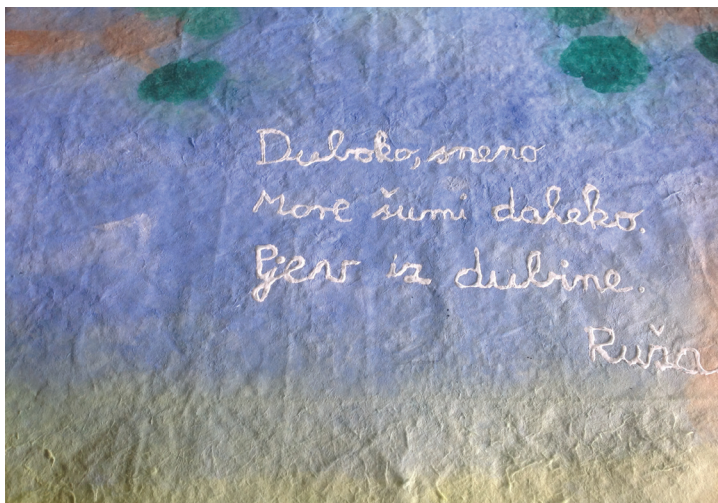 Duboko, sneno
More šumi daleko.
Pjev iz dubine.
Ruža